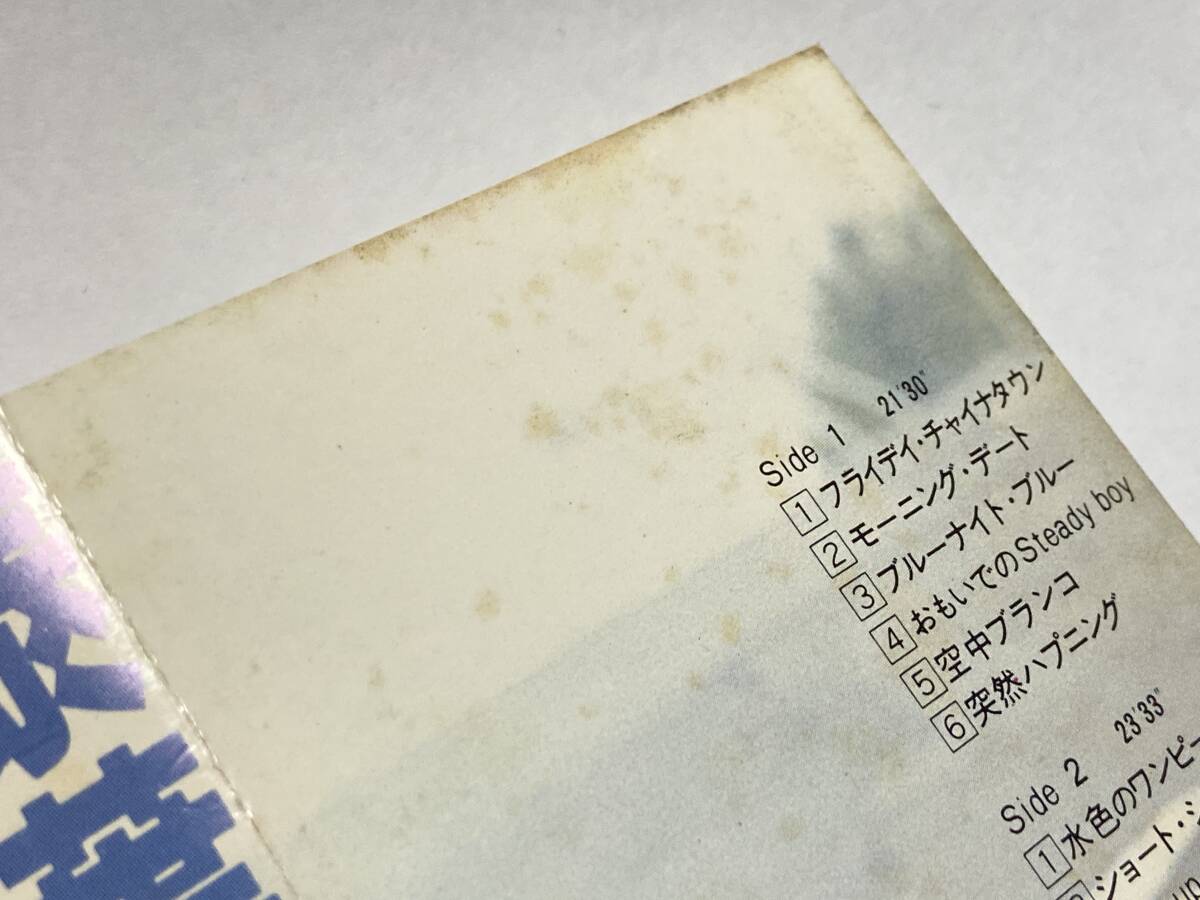 Side 1 21'30"
1 フライデイ・チャイナタウン
2 モーニング・デート
3 ブルーナイト・ブルー
4 おもいでのSteady boy
5 空中ブランコ
6 突然ハプニング
Side 2 23'33"
1 水色のワンピー
ショート・